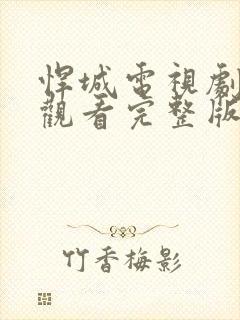 悍城電視劇
觀看完整版
竹香梅影